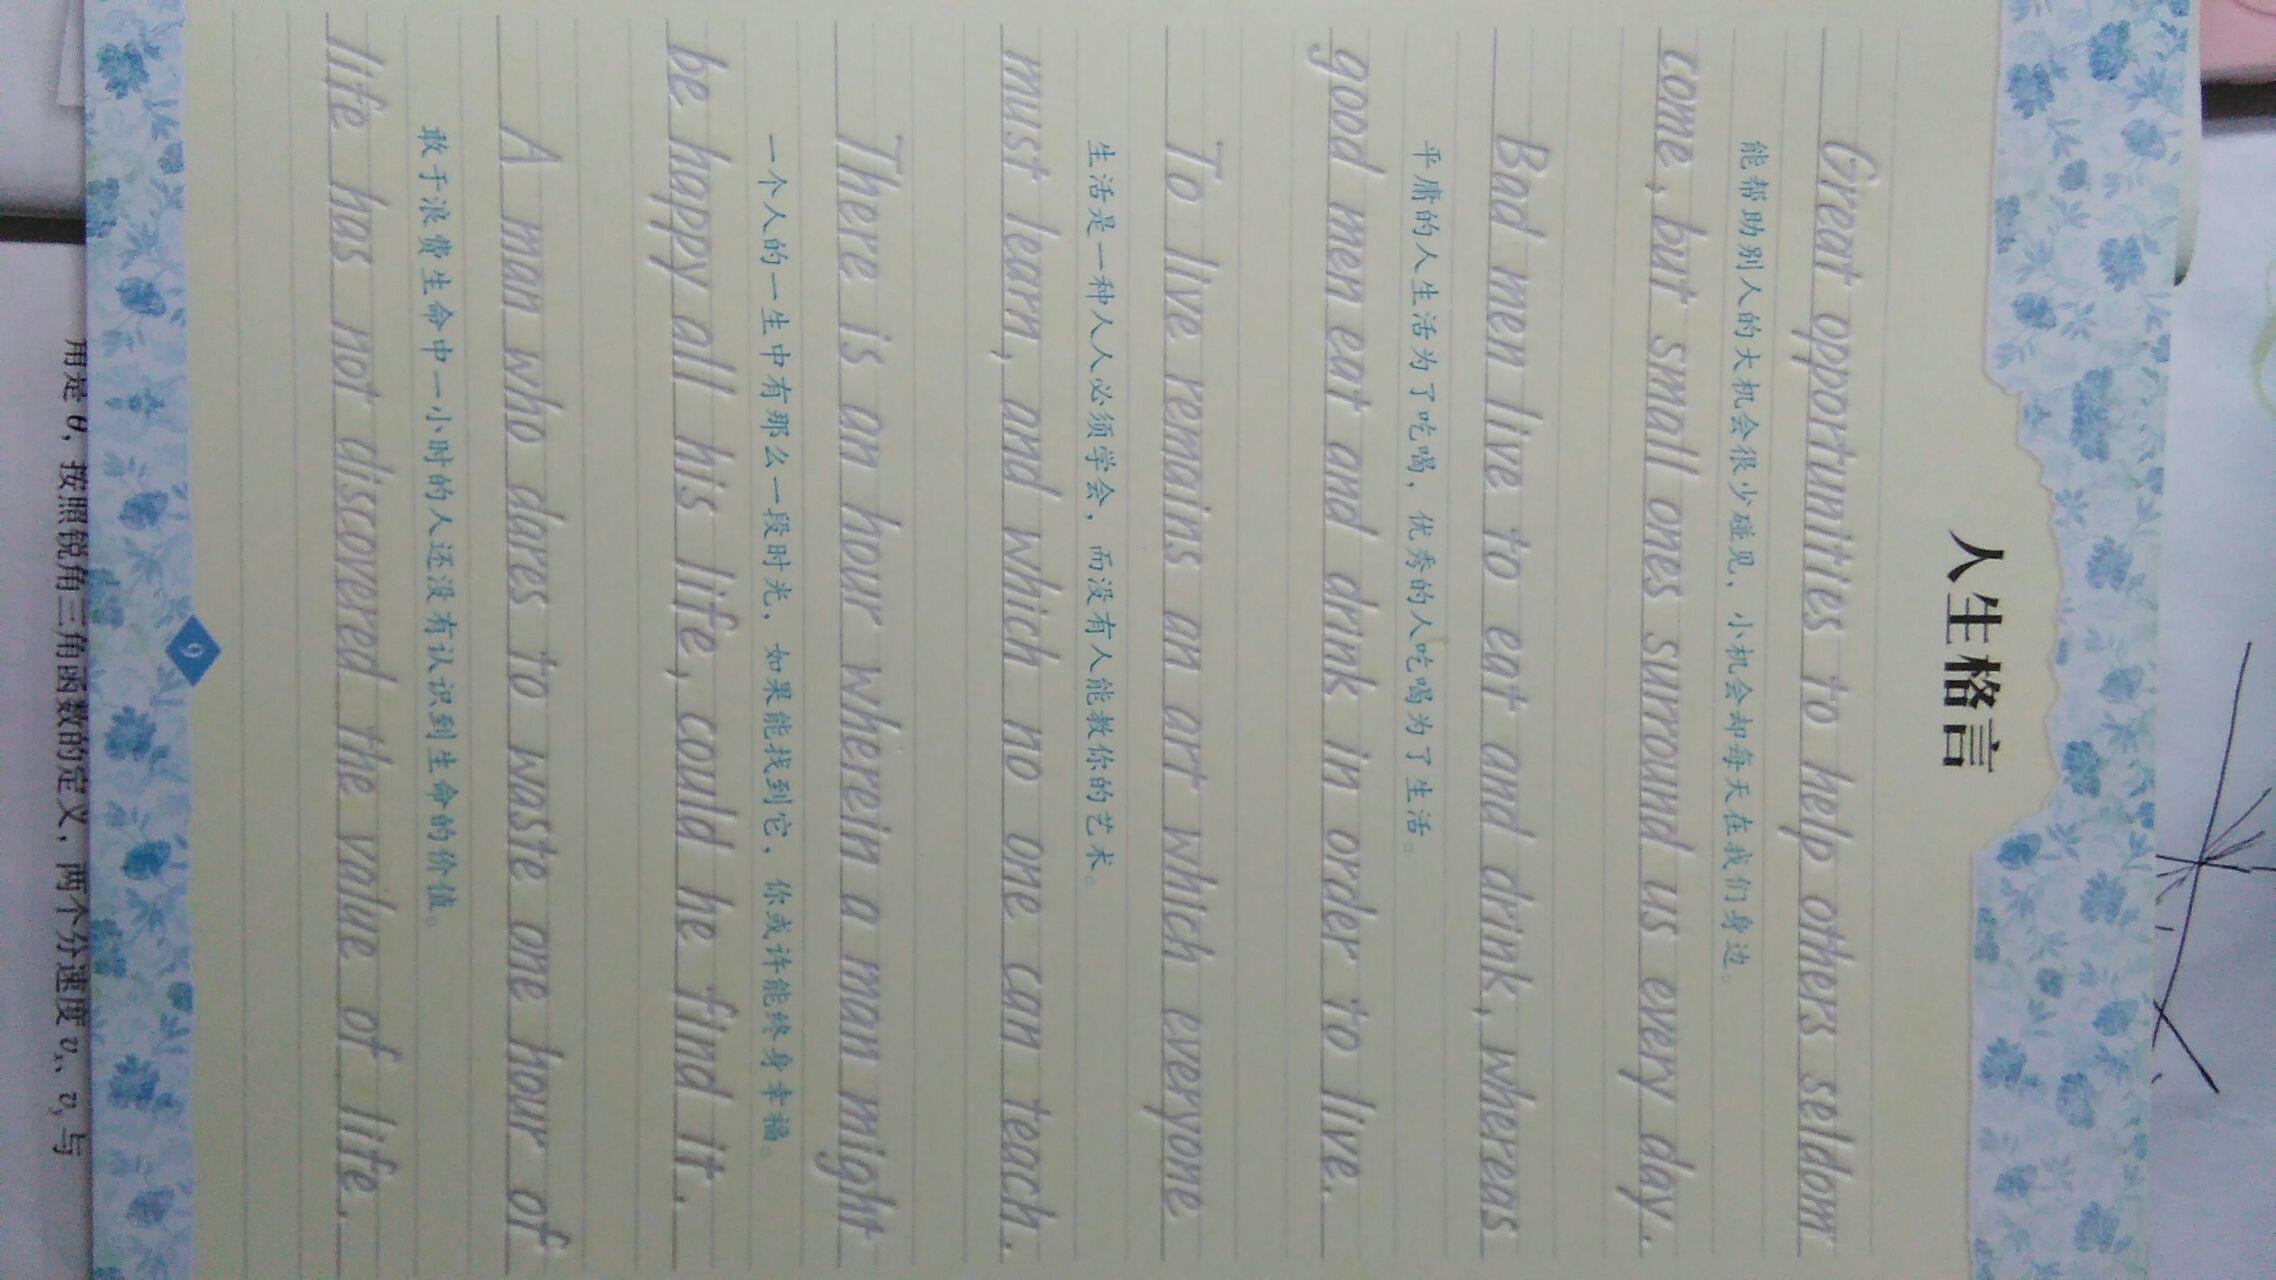 人生格言
Great opportunities to help others seldom
能帮助别人的大机会很少碰见，小机会却每天在我们身边。
come, but small ones surround us every day.
Bad men live to eat and drink, whereas
平庸的人生活为了吃喝，优秀的人吃喝为了生活。
good men eat and drink in order to live.
To live remains an art which everyone
生活是一种人人必须学会，而没有人能教你的艺术。
must learn, and which no one can teach.
There is an hour wherein a man might
一个人的一生中有那么一段时光，如果能找到它，你或许能终身幸福。
be happy all his life, could he find it.
A man who dares to waste one hour of
敢于浪费生命中一小时的人还没有认识到生命的价值。
life has not discovered the value of life.
9
用是 θ，按照锐角三角函数的定义，两个分速度 vx、vy与